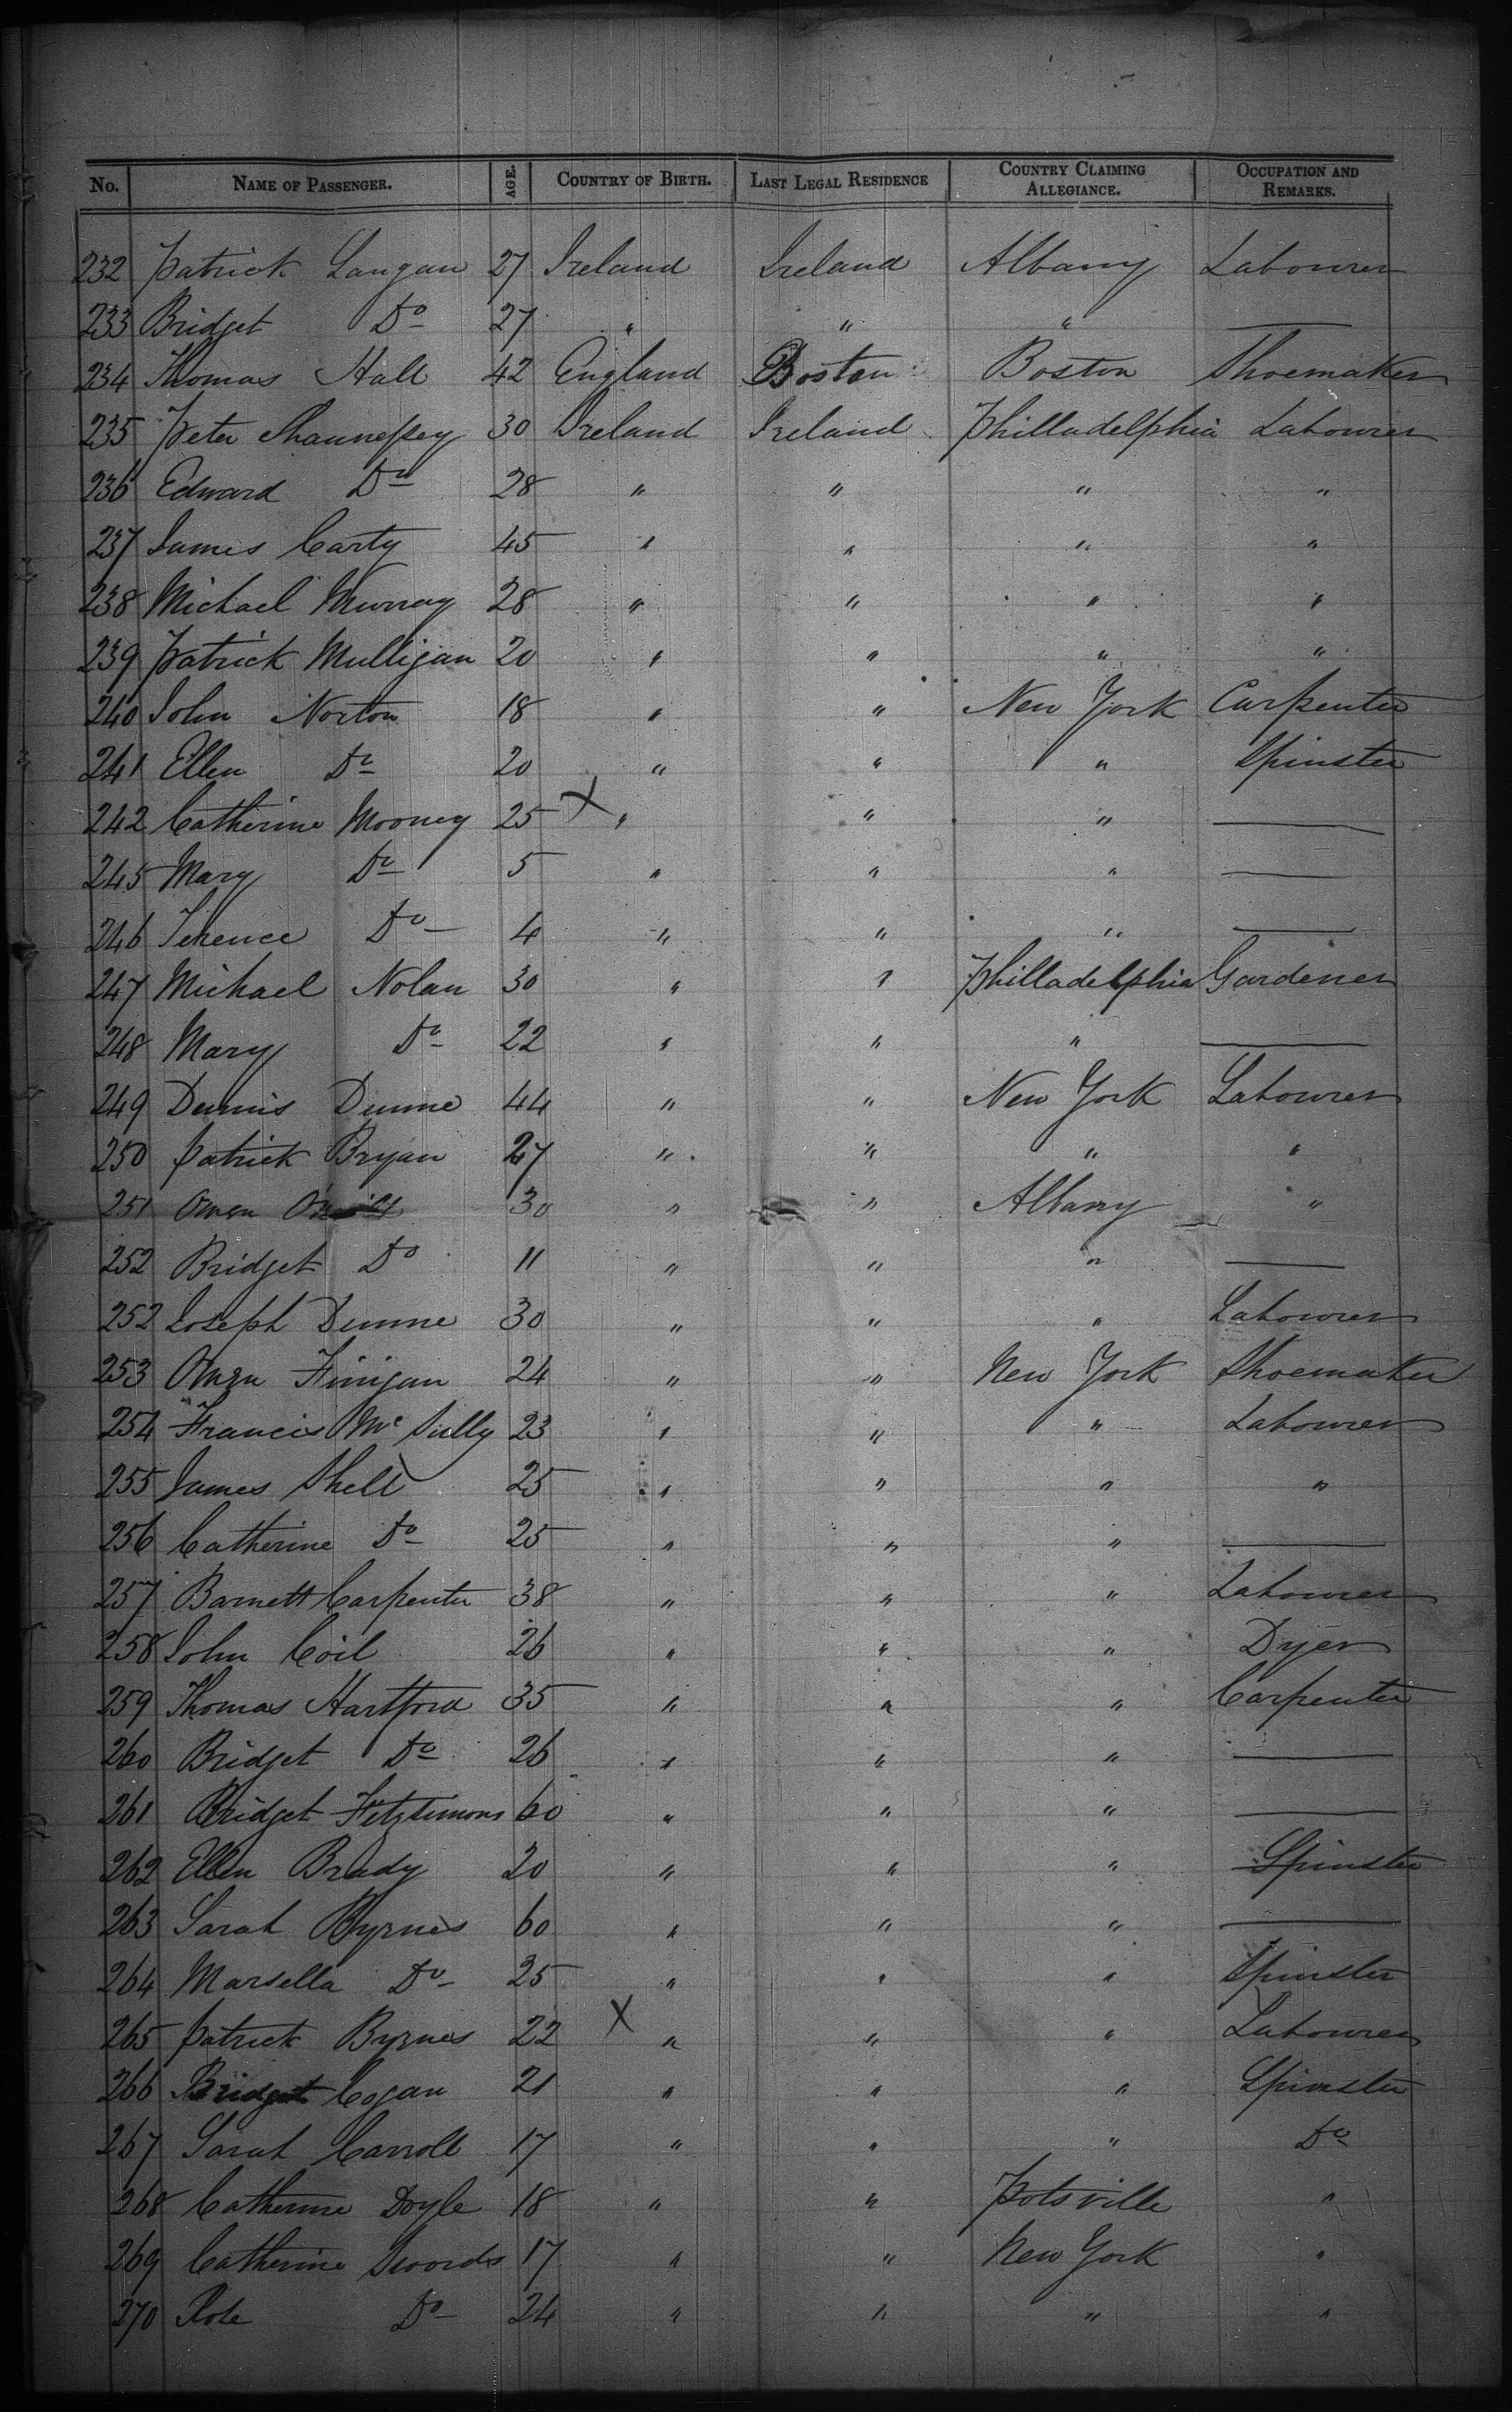 No. NAME OF PASSENGER. AGE. COUNTRY OF BIRTH. LAST LEGAL RESIDENCE COUNTRY CLAIMING ALLEGIANCE. OCCUPATION AND REMARKS.
232 Patrick Langan 27 Ireland Ireland Albany Labourer
233 Bridget Do 27 " " " —
234 Thomas Hall 42 England Boston Boston Shoemaker
235 Peter Shaunessey 30 Ireland Ireland Philladelphia Labourer
236 Edward Do 28 " " " "
237 James Carty 45 " " " "
238 Michael Murray 28 " " " "
239 Patrick Mulligan 20 " " " "
240 John Norton 18 " " New York Carpenter
241 Ellen Do 20 " " " Spinster
242 Catherine Mooney 25 X " " " —
245 Mary Do 5 " " " —
246 Terence Do 4 " " " —
247 Michael Nolan 30 " " Philladelphia Gardener
248 Mary Do 22 " " " —
249 Dennis Dunne 44 " " New York Labourer
250 Patrick Bryan 27 " " " "
251 Owen 30 " " Albany "
252 Bridget Do 11 " " " —
252 Joseph Dunne 30 " " " Labourer
253 Owen Finigan 24 " " New York Shoemaker
254 Francis Mc Sully 23 " " " Labourer
255 James Shell 25 " " " "
256 Catherine Do 25 " " " —
257 Barnett Carpenter 38 " " " Labourer
258 John Coil 26 " " " Dyer
259 Thomas Hartford 35 " " " Carpenter
260 Bridget Do 26 " " " —
261 Bridget Fitzsimons 60 " " " —
262 Ellen Brady 20 " " " Spinster
263 Sarah Byrnes 60 " " " —
264 Marsella Do 25 " " " Spinster
265 Patrick Byrnes 22 X " " " Labourer
266 Bridget Cogan 21 " " " Spinster
267 Sarah Carroll 17 " " " Do
268 Catherine Doyle 18 " " Potsville "
269 Catherine Swords 17 " " New York "
270 Rose Do 24 " " " "